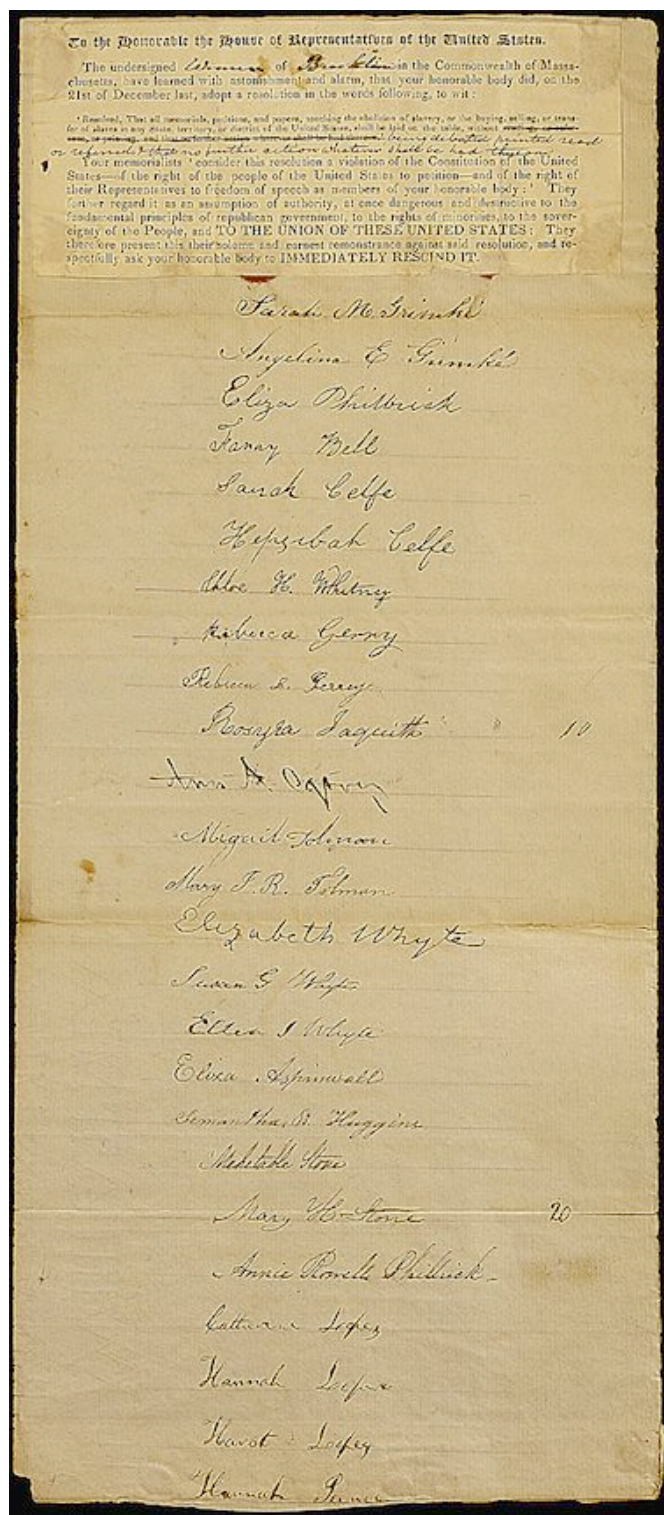 To the Honorable the House of Representatives of the United States.
The undersigned Women of Brookline in the Commonwealth of Massa-
chusetts, have learned with astonishment and alarm, that your honorable body did, on the
21st of December last, adopt a resolution in the words following, to wit:
'Resolved, That all memorials, petitions, and papers, touching the abolition of slavery, or the buying, selling, or trans-
fer of slaves in any state, territory, or district of the United States, shall be laid on the table, without
being debated printed read
or referred & that no further action whatever shall be had thereon.'
Your memorialists 'consider this resolution a violation of the Constitution of the United
States—of the right of the people of the United States to petition—and of the right of
their Representatives to freedom of speech as members of your honorable body:' They
further regard it as an assumption of authority, at once dangerous and destructive to the
fundamental principles of republican government, to the rights of minorities, to the sover-
eignty of the People, and TO THE UNION OF THESE UNITED STATES: They
therefore present this their solemn and earnest remonstrance against said resolution, and re-
spectfully ask your honorable body to IMMEDIATELY RESCIND IT.
Sarah M. Grimké
Angelina E Grimké
Eliza Philbrick
Fanny Bell
Sarah Celfe
Hepzibah Celfe
Chloe H. Whitney
Rebecca Gerry
Rebecca Gerry
Jaquith 10
Ann A.
Abigail Tolman
Mary F. R. Tolman
Elizabeth Whyte
Susan G Whyte
Ellen I Whyte
Eliza Aspinwall
Semantha Huggins
Mehetable Stone
Mary H Stone 20
Annie Philbrick
Lopez
Hannah
Lopez
Hannah